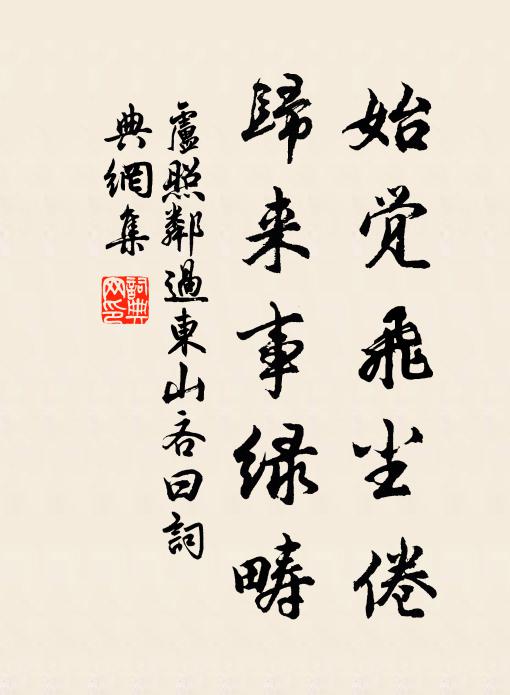 始觉飛尘倦
歸来事緑疇
盧照鄰過東山谷曰詞
典網集
詞典
网印